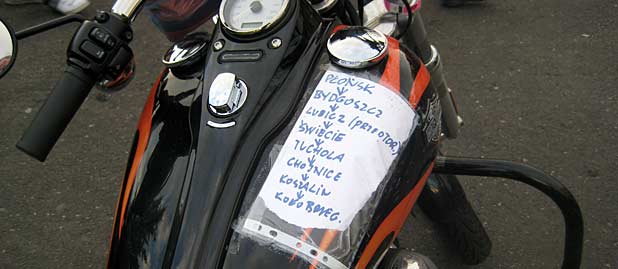 PŁOŃSK
BYDGOSZCZ
LUBICZ (PRZY OTOR.)
ŚWIECIE
TUCHOLA
CHOJNICE
KOSZALIN
KOŁOBRZEG.